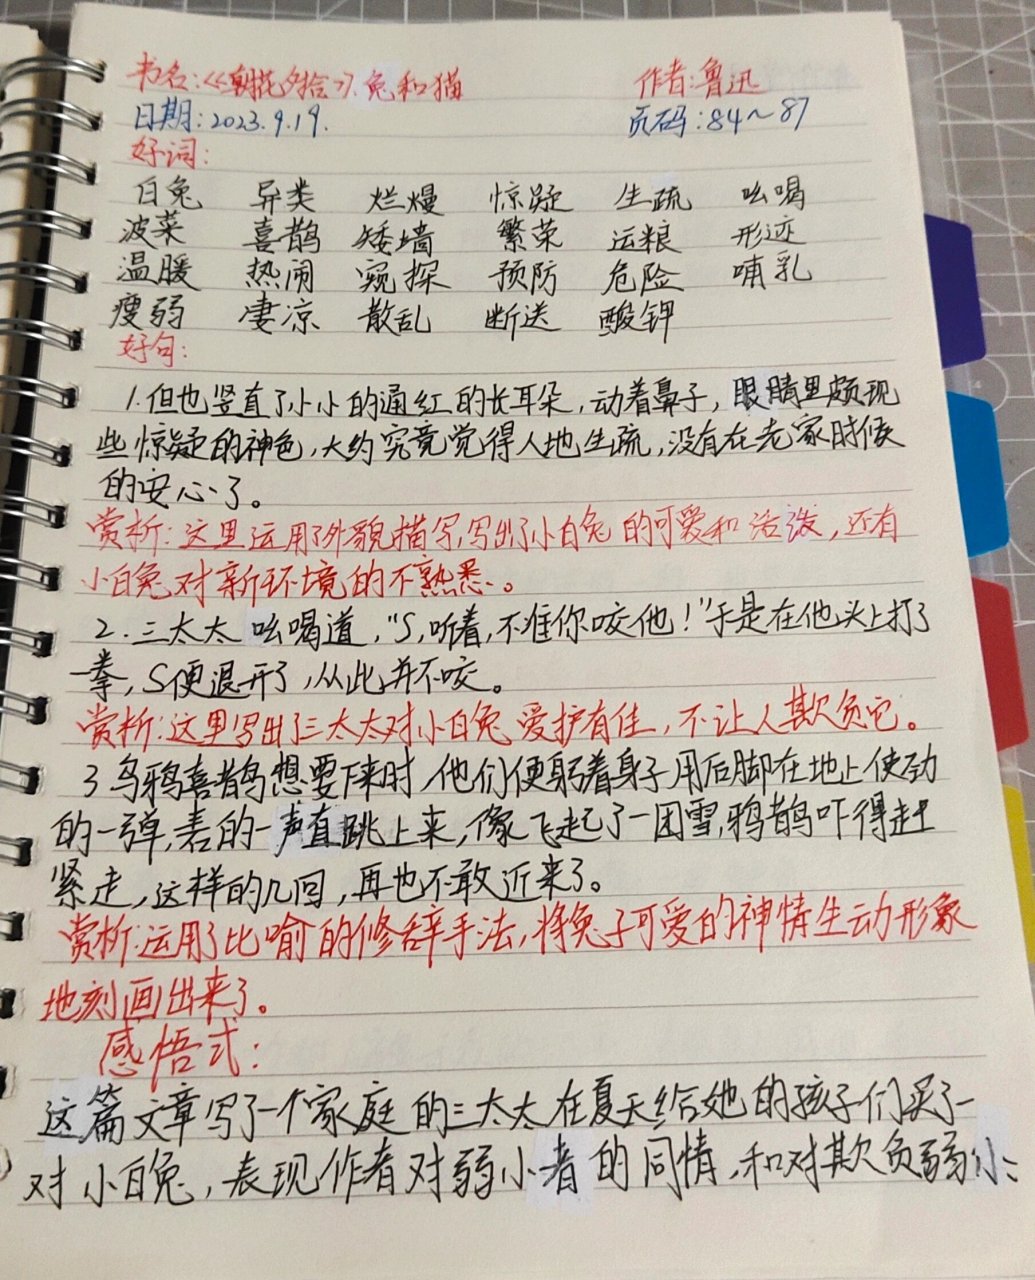 书名:《朝花夕拾》.兔和猫 作者:鲁迅
日期:2023.9.19. 页码:84~87
好词:
白兔 异类 烂熳 惊疑 生疏 吆喝
波菜 喜鹊 矮墙 繁荣 运粮 形迹
温暖 热闹 窥探 预防 危险 哺乳
瘦弱 凄凉 散乱 断送 酸钾
好句:
1.但也竖直了小小的通红的长耳朵,动着鼻子,眼睛里颇现
些惊疑的神色,大约究竟觉得人地生疏,没有在老家时候
的安心了。
赏析:这里运用了外貌描写,写出了小白兔的可爱和活泼,还有
小白兔对新环境的不熟悉。
2.三太太吆喝道,"S,听着,不准你咬他!"于是在他头上打了
一拳,S便退开了,从此并不咬。
赏析:这里写出了三太太对小白兔爱护有佳,不让人欺负它。
3乌鸦喜鹊想要下来时,他们便躬着身子用后脚在地上使劲
的一弹,砉的一声直跳上来,像飞起了一团雪,鸦鹊吓得赶
紧走,这样的几回,再也不敢近来了。
赏析:运用了比喻的修辞手法,将兔子可爱的神情生动形象
地刻画出来了。
感悟式:
这篇文章写了一个家庭的三太太在夏天给她的孩子们买了一
对小白兔,表现作者对弱小者的同情,和对欺负弱小